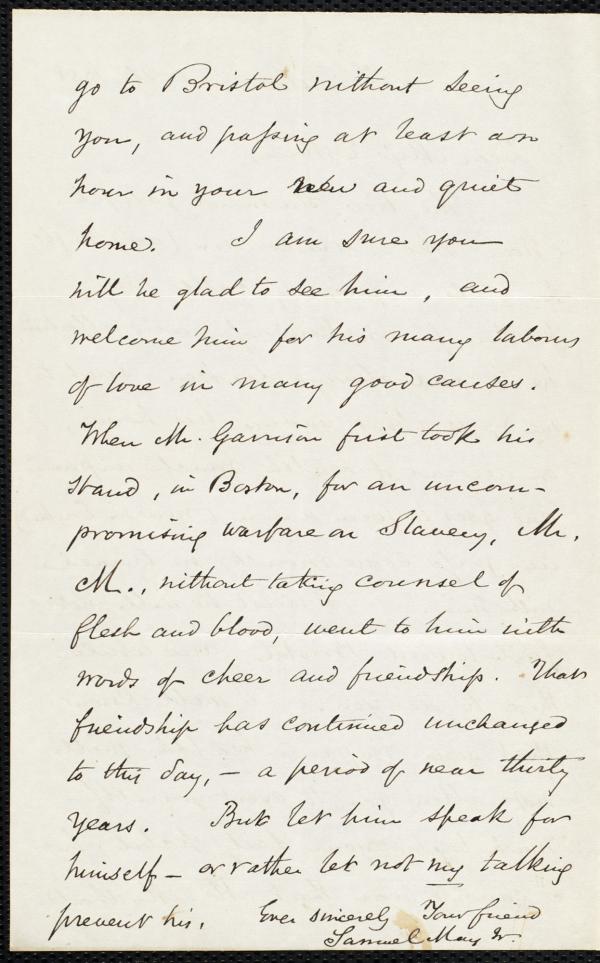 go to Bristol without seeing
you, and passing at least an
hour in your new and quiet
home. I am sure you
will be glad to see him, and
welcome him for his many labours
of love in many good causes.
When Mr. Garrison first took his
stand, in Boston, for an uncom-
promising warfare on Slavery, Mr.
M., without taking counsel of
flesh and blood, went to him with
words of cheer and friendship. That
friendship has continued unchanged
to this day, — a period of near thirty
years. But let him speak for
himself — or rather let not my talking
prevent his. Ever sincerely Your friend
Samuel May Jr.